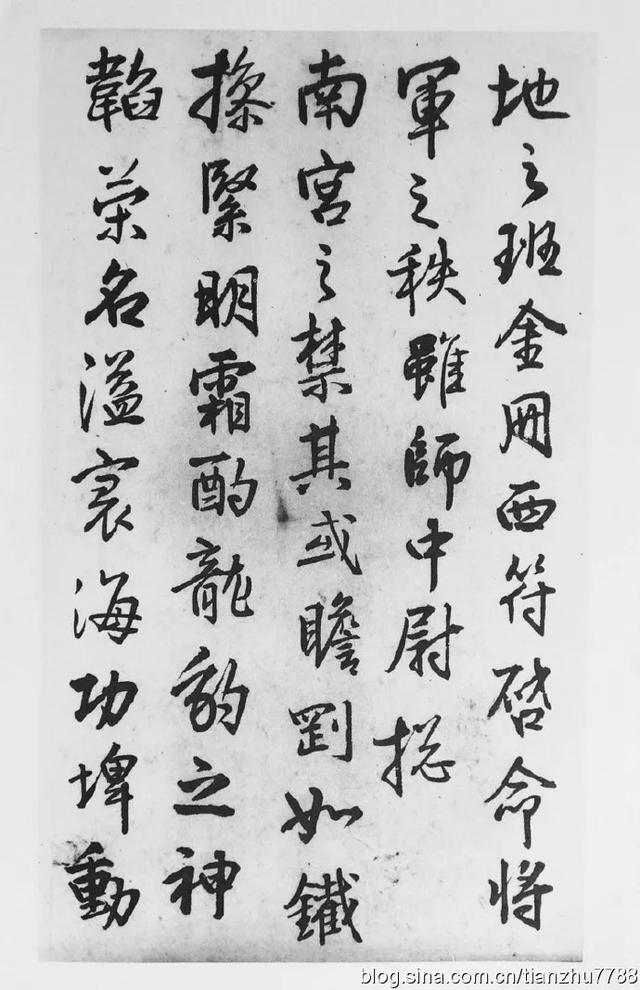 地之班金用西符啓命將
軍之秩雖師中尉揔
南宮之禁其或瞻𦊅如鐵
操緊明霜酌龍豹之神
韜榮名溢寰海功埤動
blog.sina.com.cn/tianzhu7788